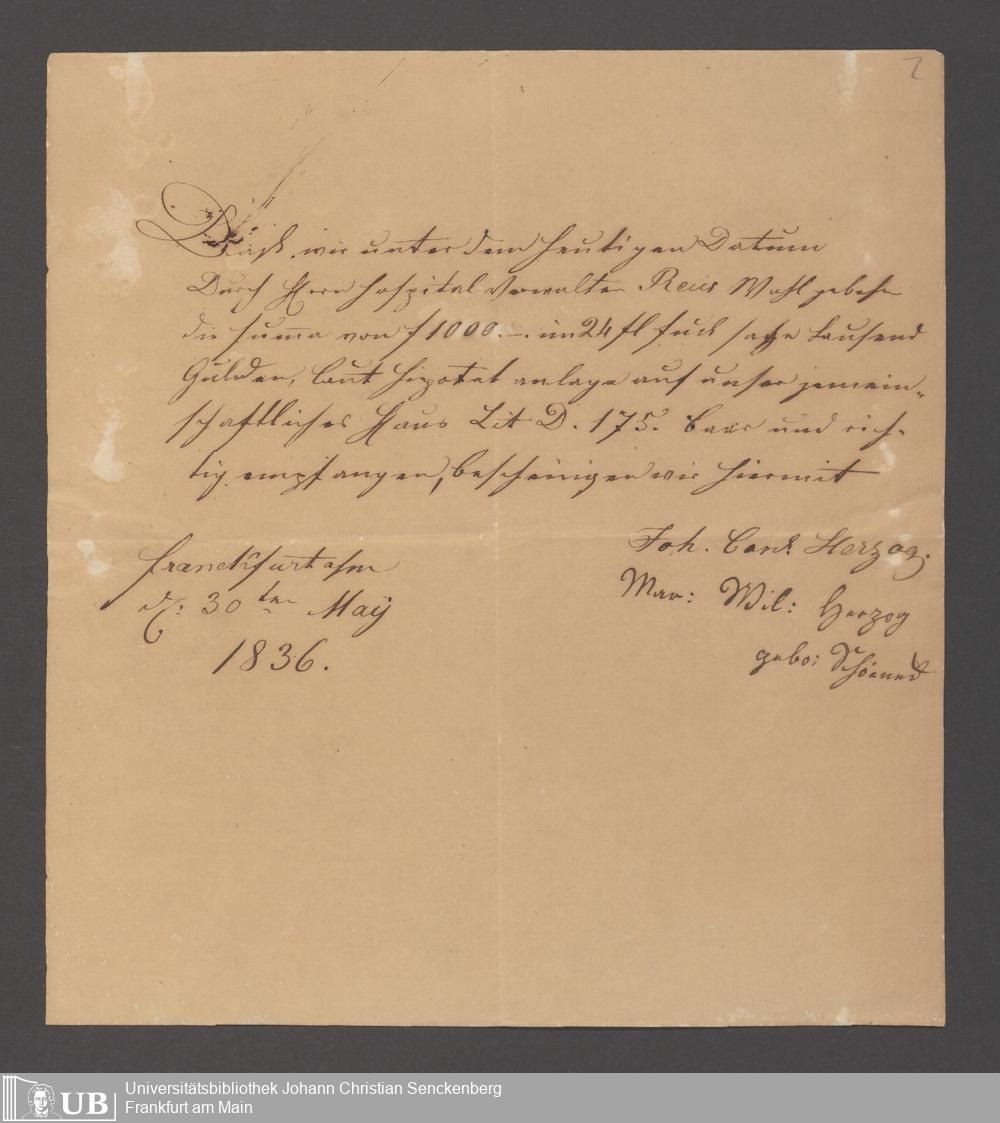 2
Daß wir unter dem heutigen Datum
Durch Herr Hospital Verwalter Reus Wohlgebohr
die Suma von f 1000.–. im 24 fl fuß sage Tausend
Gulden, laut Hipotek anlage auf unser gemein-
schaftliches Haus Lit D. 175. baar und rich-
tig empfangen, bescheinigen wir hiermit
Franckfurt a/m
d: 30ten Maÿ
1836.
Joh. Conr. Herzog.
Mar: Wil: Herzog
gebo:
UB
Universitätsbibliothek Johann Christian Senckenberg
Frankfurt am Main